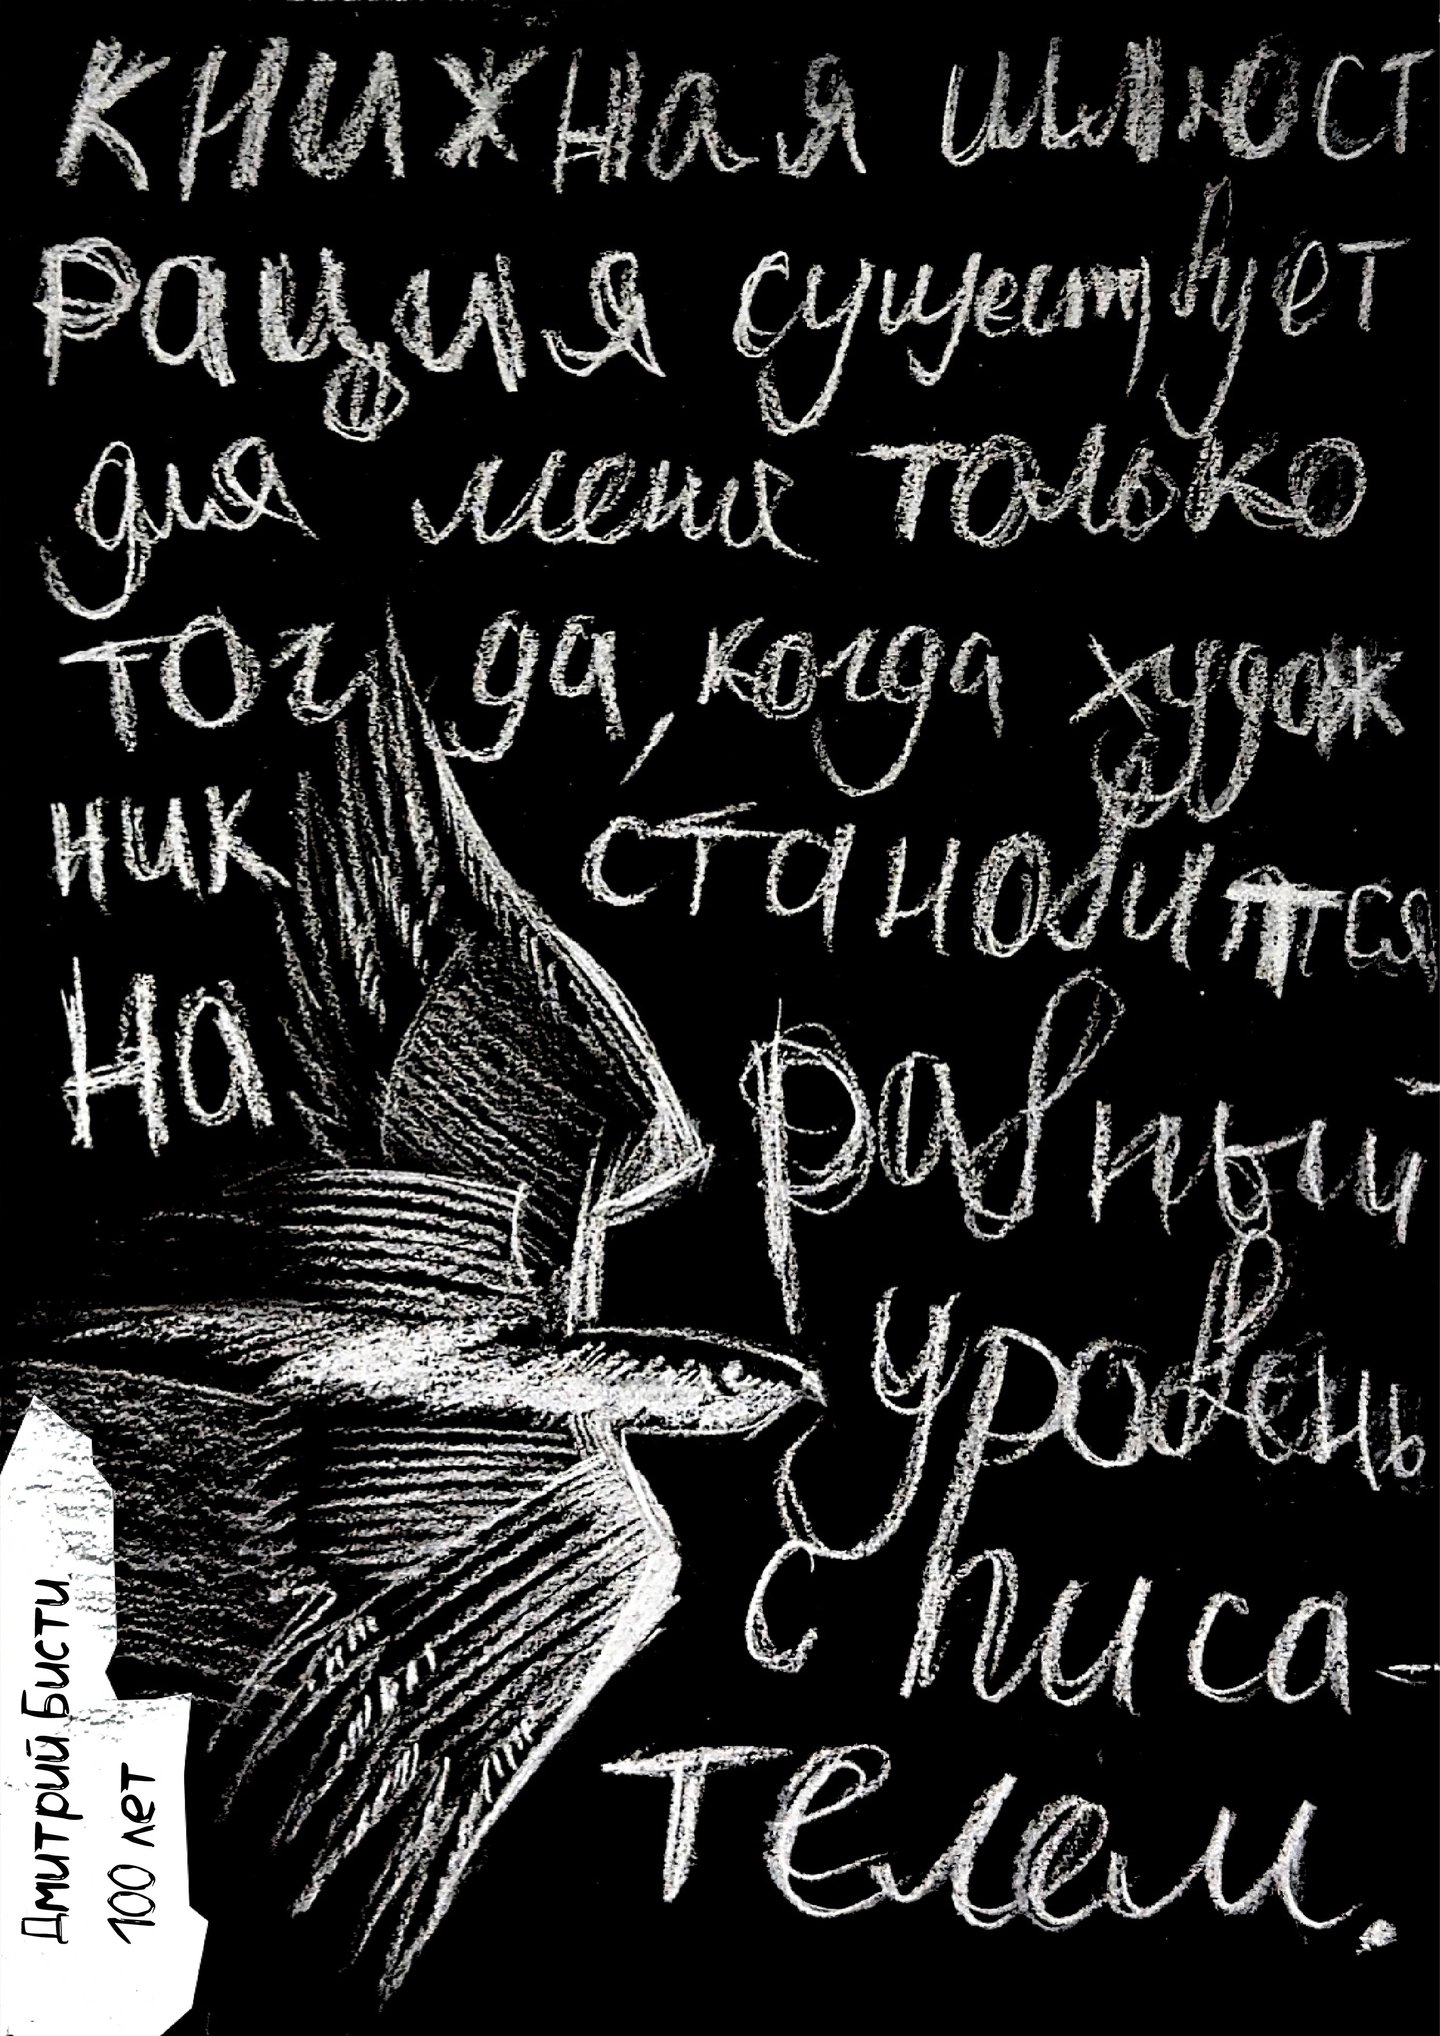 книжная иллюст
рация существует
для меня только
тогда, когда худож
ник становится
на равный
уровень
с писа-
телем.
Дмитрий Бисти
100 лет